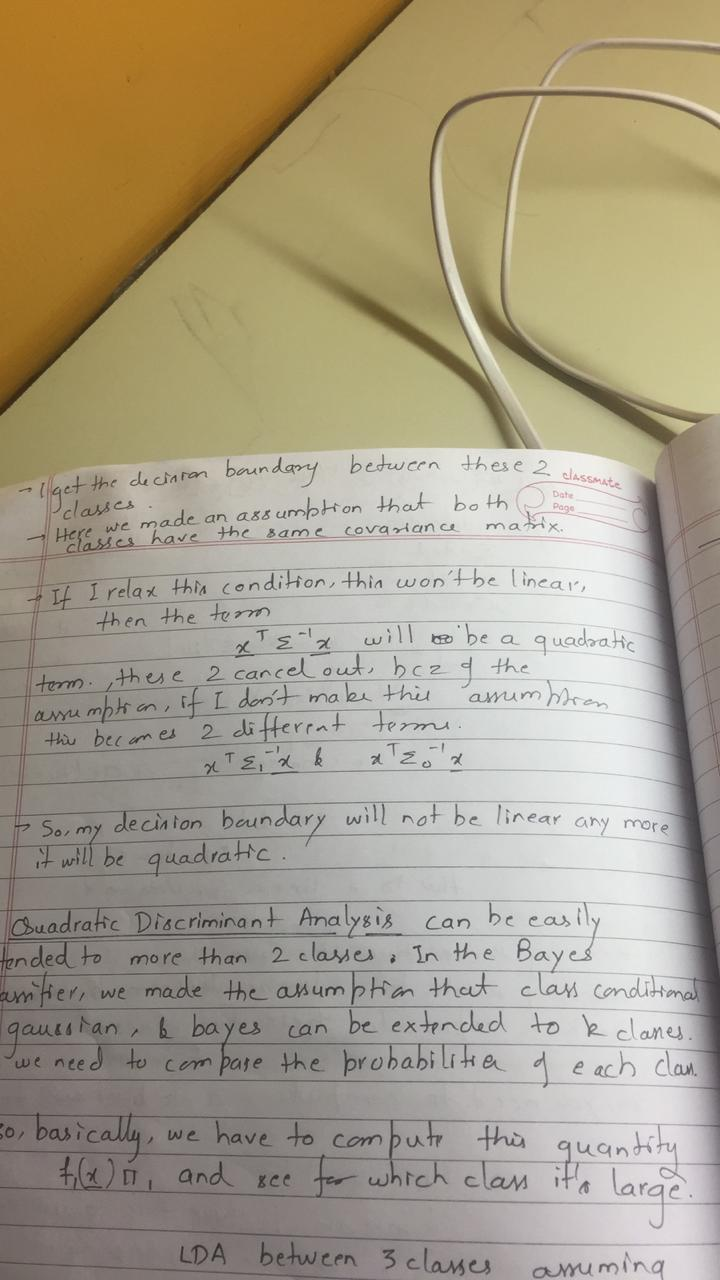 → I get the decision boundary between these 2
classes.
classmate
Date
Page
→ Here we made an assumption that both
classes have the same covariance matrix.
→ If I relax this condition, this won't be linear,
then the term
x^T Σ^-1 x will be a quadratic
term., these 2 cancel out, bcz of the
assumption, if I don't make this assumption
this becomes 2 different terms.
x^T Σ₁^-1 x & x^T Σ₀^-1 x
→ So, my decision boundary will not be linear any more
it will be quadratic.
Quadratic Discriminant Analysis can be easily
tended to more than 2 classes. In the Bayes
assifier, we made the assumption that class conditional
gaussian, & bayes can be extended to k classes.
we need to compare the probabilities of each class.
so, basically, we have to compute this quantity
f₁(x) Π₁ and see for which class it's large.
LDA between 3 classes assuming